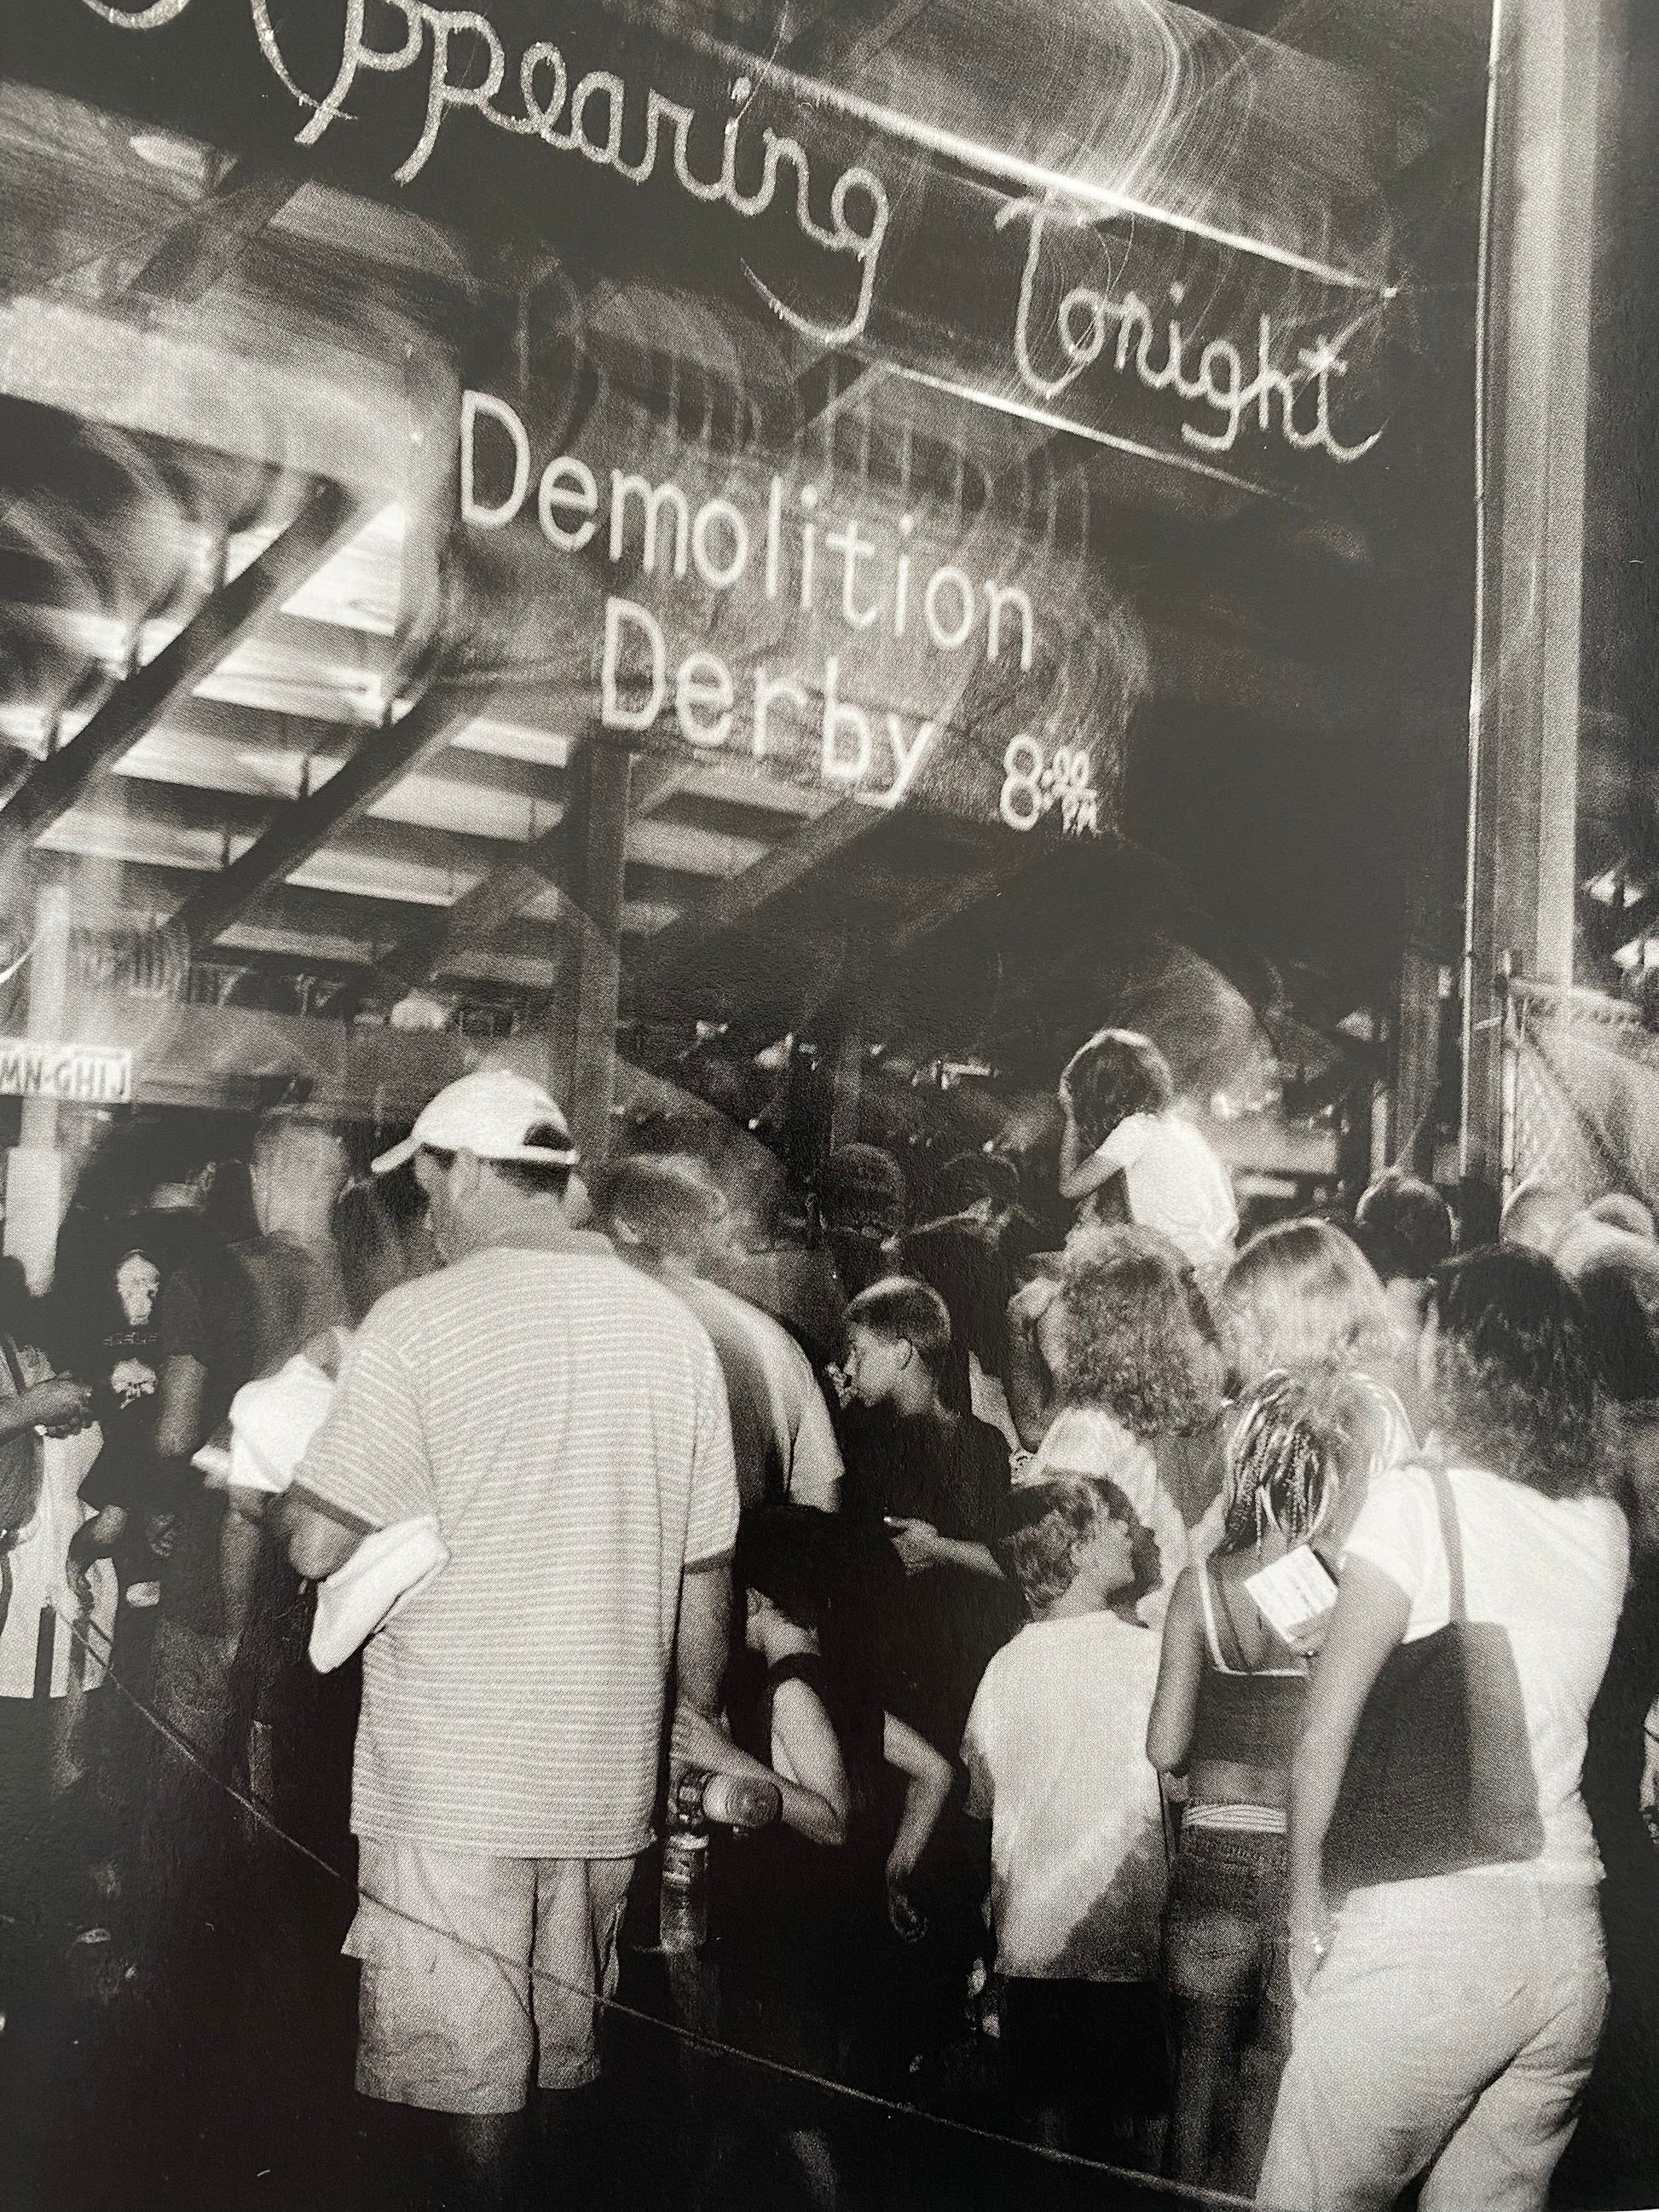 Appearing Tonight
Demolition
Derby 8:00
PM
MN-GHIJ